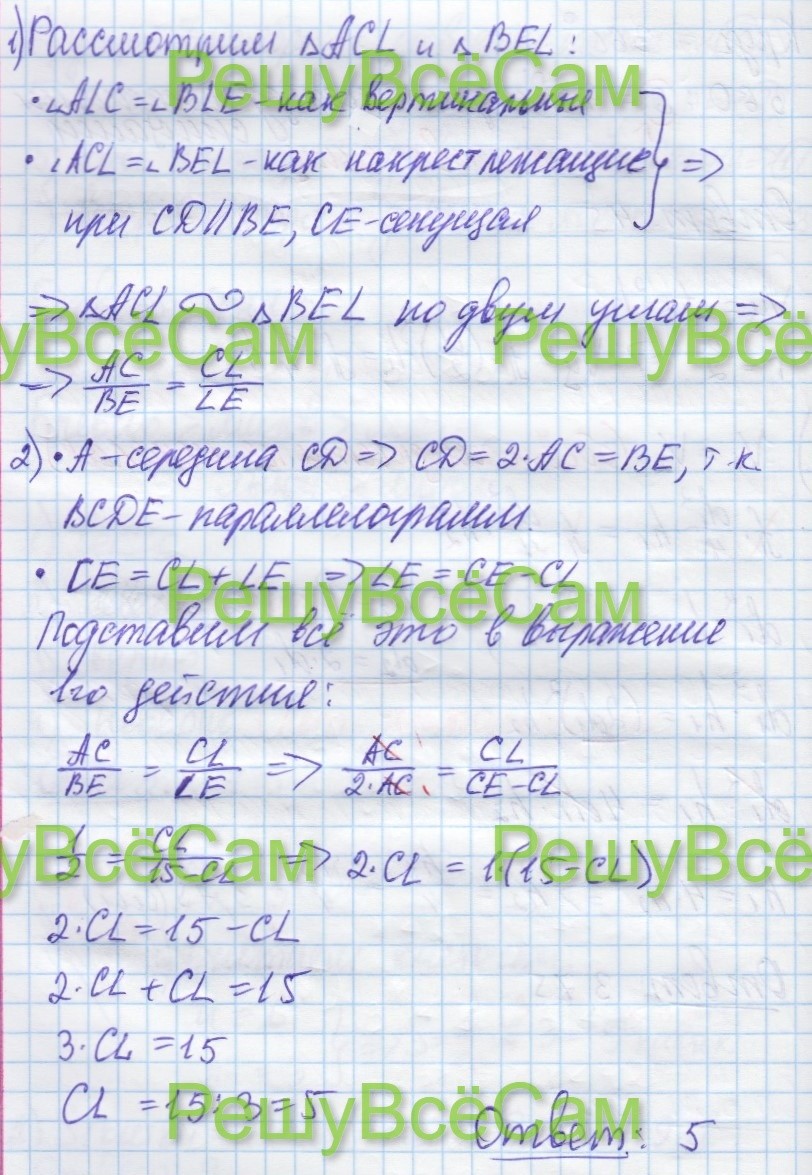 1) Рассмотрим △ACL и △BEL:
• ∠ALC = ∠BLE - как вертикальные
• ∠ACL = ∠BEL - как накрест лежащие =>
при CD || BE, CE - секущая
=> △ACL ~ △BEL по двум углам =>
=> AC/BE = CL/LE
2) • A - середина CD => CD = 2·AC = BE, т.к.
BCDE - параллелограмм.
• CE = CL + LE => LE = CE - CL
Подставим всё это в выражение
1го действия:
AC/BE = CL/LE => AC/2·AC = CL/CE-CL
1/2 = CL/15-CL => 2·CL = 1·(15-CL)
2·CL = 15 - CL
2·CL + CL = 15
3·CL = 15
CL = 15:3 = 5
Ответ: 5
РешуВсёСам